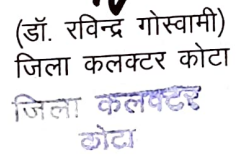 (डॉ. रविन्द्र गोस्वामी)
जिला कलक्टर कोटा
जिला कलक्टर
कोटा